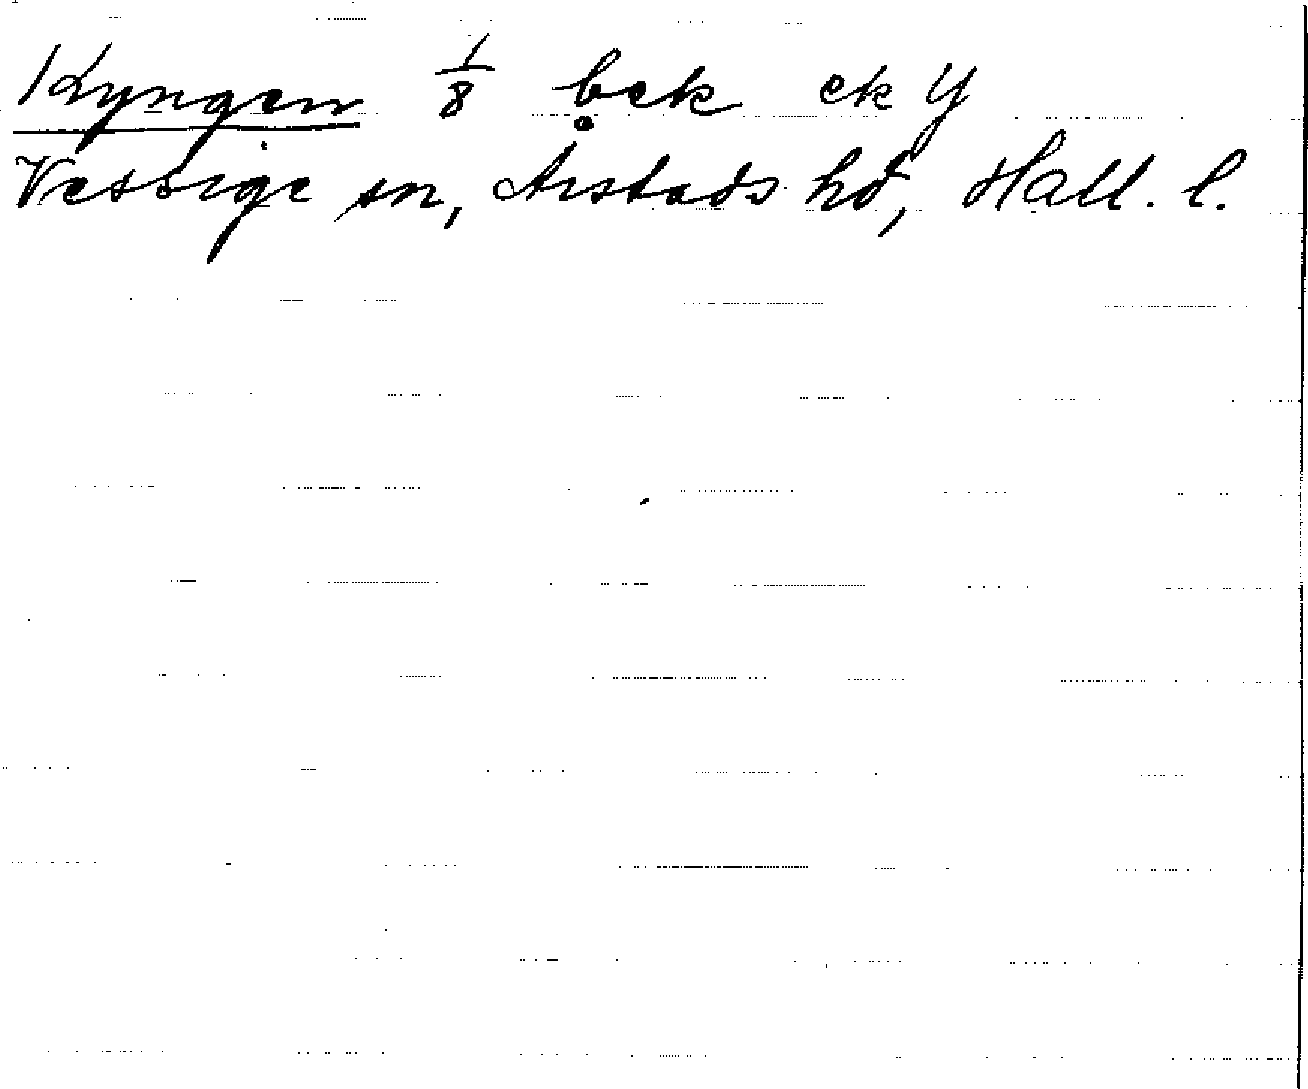 Kyngen 1/8 bek ek Y
Vessige sn, Årstads hd, Hall. l.